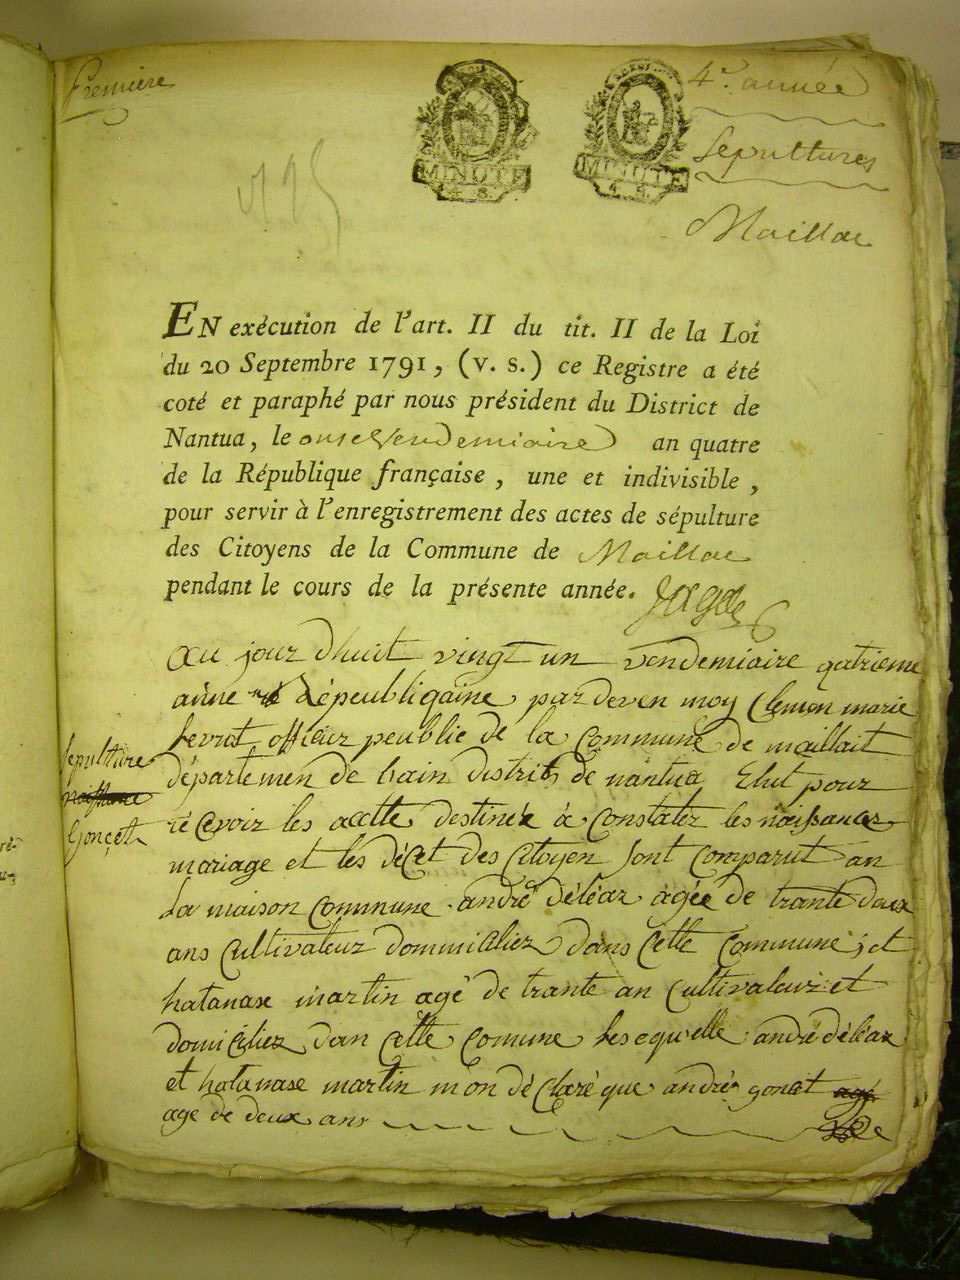 Premiere
4e. année
Sepultures
Maillac
MINUTE
4 S.
MINUTE
4 S.
1795
EN exécution de l'art. II du tit. II de la Loi
du 20 Septembre 1791, (v. s.) ce Registre a été
coté et paraphé par nous président du District de
Nantua, le onse Vendemiaire an quatre
de la République française, une et indivisible,
pour servir à l'enregistrement des actes de sépulture
des Citoyens de la Commune de Maillac
pendant le cours de la présente année.
Sepulture
Gonçet
au jour dhuit vingt un vendemiaire qatrieme
anne républiqaine par deven moy Clemen marie
officier peublic de la Commune de maillait
départemen de hain distrit de nantua Elut pour
récevoir les actte destinéz à constatez les naissances
mariage et les décet des citoyen sont comparut an
La maison commune andré déléaz agée de trante deux
ans cultivateur dommicïliez dans cette commune, et
hatanase martin agé de trante an cultivateur et
domiciliez dan cette comune lesequelle andré déléaz
et hatanase martin m'on déclaré que andré gonet agé
age de deux ans